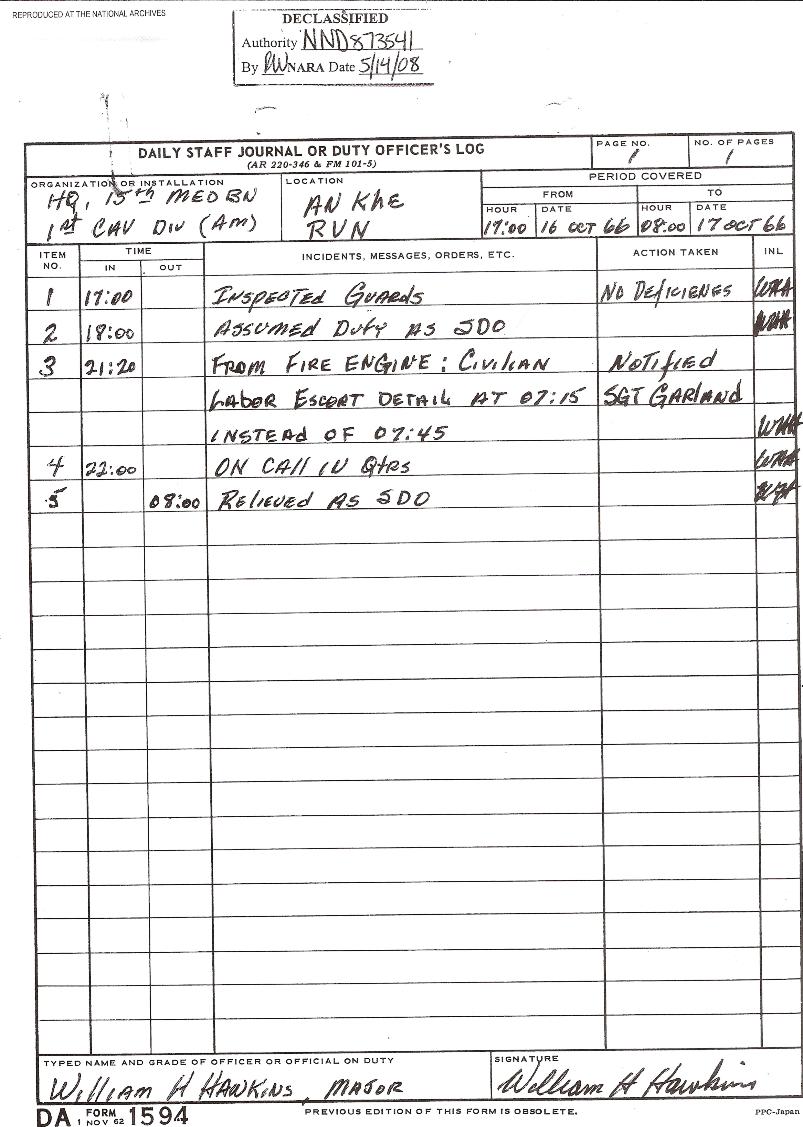 REPRODUCED AT THE NATIONAL ARCHIVES
DECLASSIFIED
Authority NND873541
By NARA Date 5/14/08
DAILY STAFF JOURNAL OR DUTY OFFICER'S LOG
(AR 220-346 & FM 101-5)
PAGE NO.
1
NO. OF PAGES
1
ORGANIZATION OR INSTALLATION
HQ, 15th MED BN
1st CAV DIV (Am)
LOCATION
AN KhE
RVN
PERIOD COVERED
FROM
TO
HOUR
DATE
HOUR
DATE
17:00
16 OCT 66
08:00
17 OCT 66
ITEM NO.
TIME
IN
OUT
INCIDENTS, MESSAGES, ORDERS, ETC.
ACTION TAKEN
INL
1 17:00 INSPECTED GUARDS NO DEFICIENES WHH
2 18:00 ASSUMED DUTY AS SDO WHH
3 21:20 FROM FIRE ENGINE : CIVILIAN NOTIFIED
LABOR ESCORT DETAIL AT 07:15 SGT GARLAND
INSTEAD OF 07:45 WHH
4 22:00 ON CALL IN QTRS WHH
5 08:00 RELIEVED AS SDO WHH
TYPED NAME AND GRADE OF OFFICER OR OFFICIAL ON DUTY
WILLIAM H HAWKINS, MAJOR
SIGNATURE
William H Hawkins
DA FORM 1 NOV 62 1594
PREVIOUS EDITION OF THIS FORM IS OBSOLETE.
PPC-Japan